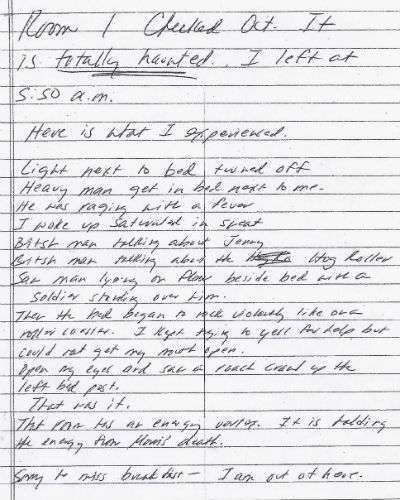 Room 1 Checked Out. It
is totally haunted. I left at
5:50 a.m.
Here is what I experienced.
Light next to bed turned off
Heavy man get in bed next to me.
He was raging with a fever
I woke up saturated in sweat
British man talking about Jenny
British man talking about the Hog Roller
Saw man lying on floor beside bed with a
soldier standing over him.
Then the bed began to rock violently like on a
roller coaster. I kept trying to yell for help but
could not get my mouth open.
Open my eyes and saw a roach crawl up the
left bed post.
That was it.
That room has an energy vortex. It is holding
the energy from death.
Sorry to miss breakfast - I am out of here.